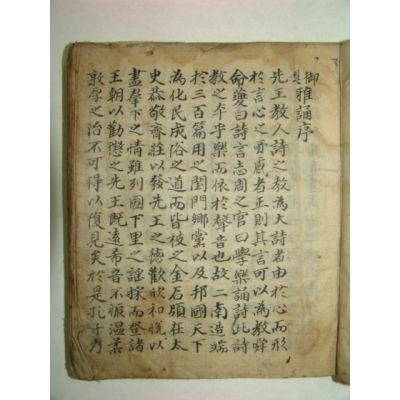 御製雅誦序
先王教人詩之教為大詩者由於心而形
於言心之所感者正則其言可以為教舜
命夔曰詩言志周之官曰學樂誦詩此詩
教之本乎樂而依於聲音也故二南造端
於三百篇用之閨門鄉黨以及邦國天下
為化民成俗之道而皆被之金石頌在太
史恭敬齊莊以發先王之德歡欣和悅以
盡羣下之情雖列國下里之謠採而登諸
王朝以勸懲之先王旣遠希音不振溫柔
敦厚之治不可得以復見矣於是孔子乃